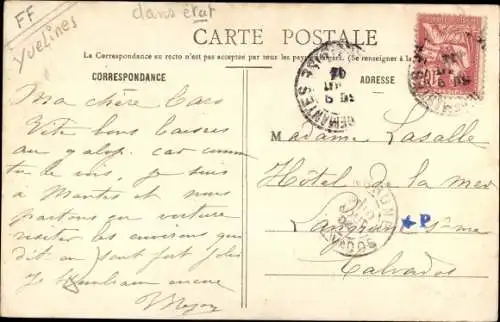 FF
Yvelines
dans état
CARTE POSTALE
La Correspondance au recto n'est pas acceptée par tous les pays étrangers. (Se renseigner à la
CORRESPONDANCE
ADRESSE
Ma chère Caro
Vite bons baisers
au galop. car comme
tu le vois, je suis
à Mantes et nous
partons en voiture
visiter les environs que
dit on sont fort jolis
Je t'embrasse encore
Madame Lasalle
Hôtel de la mer
Langrune s-mer
Calvados
★P